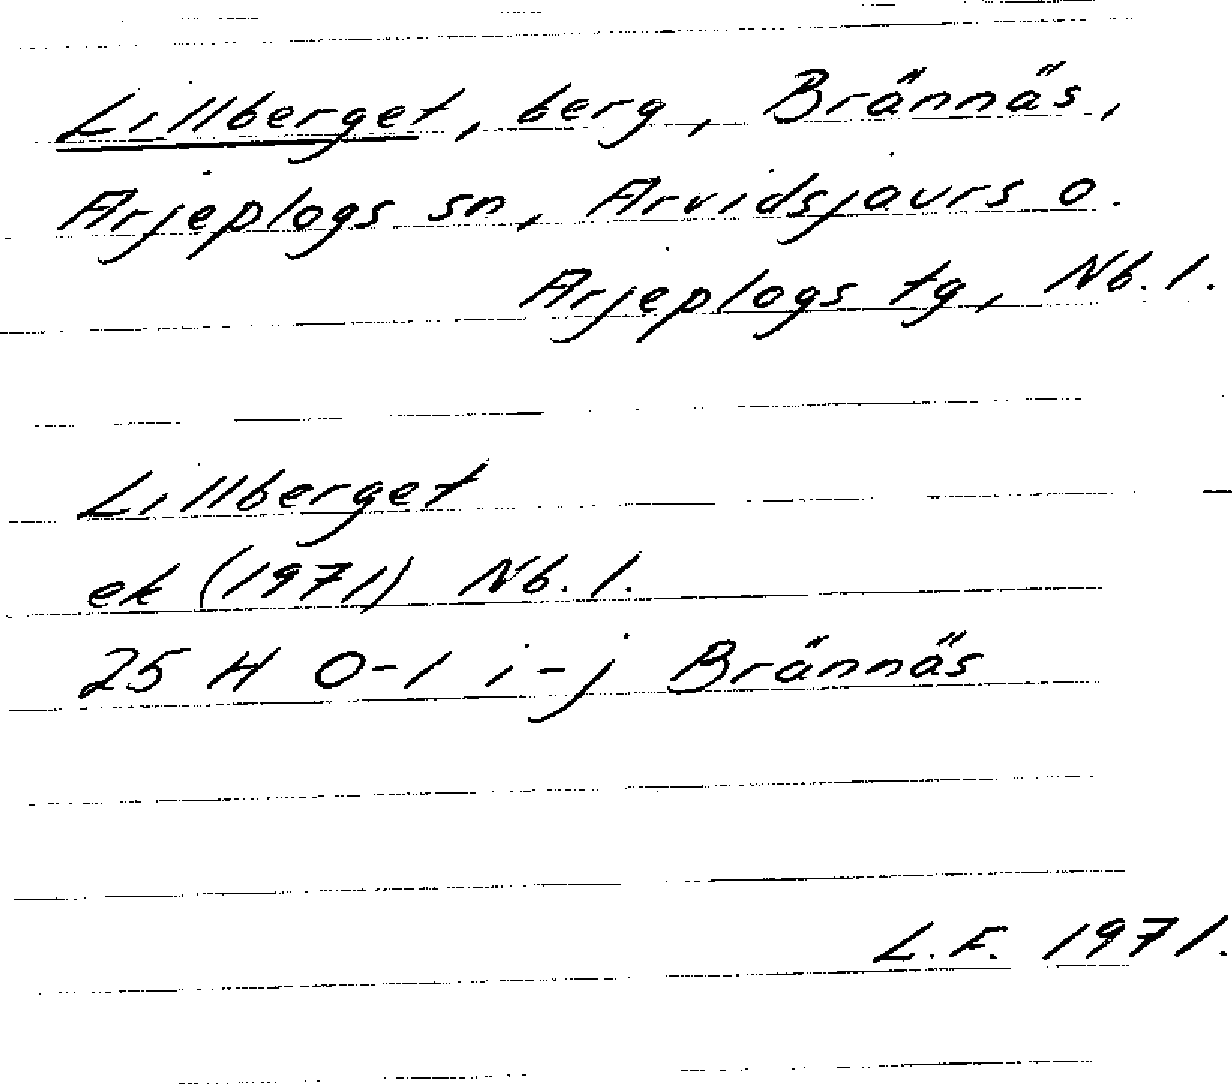 Lillberget, berg, Brännäs,
Arjeplogs sn, Arvidsjaurs o.
Arjeplogs tg, Nb. l.
Lillberget
ek (1971) Nb. l.
25 H 0-1 i-j Brännäs
L.F. 1971.